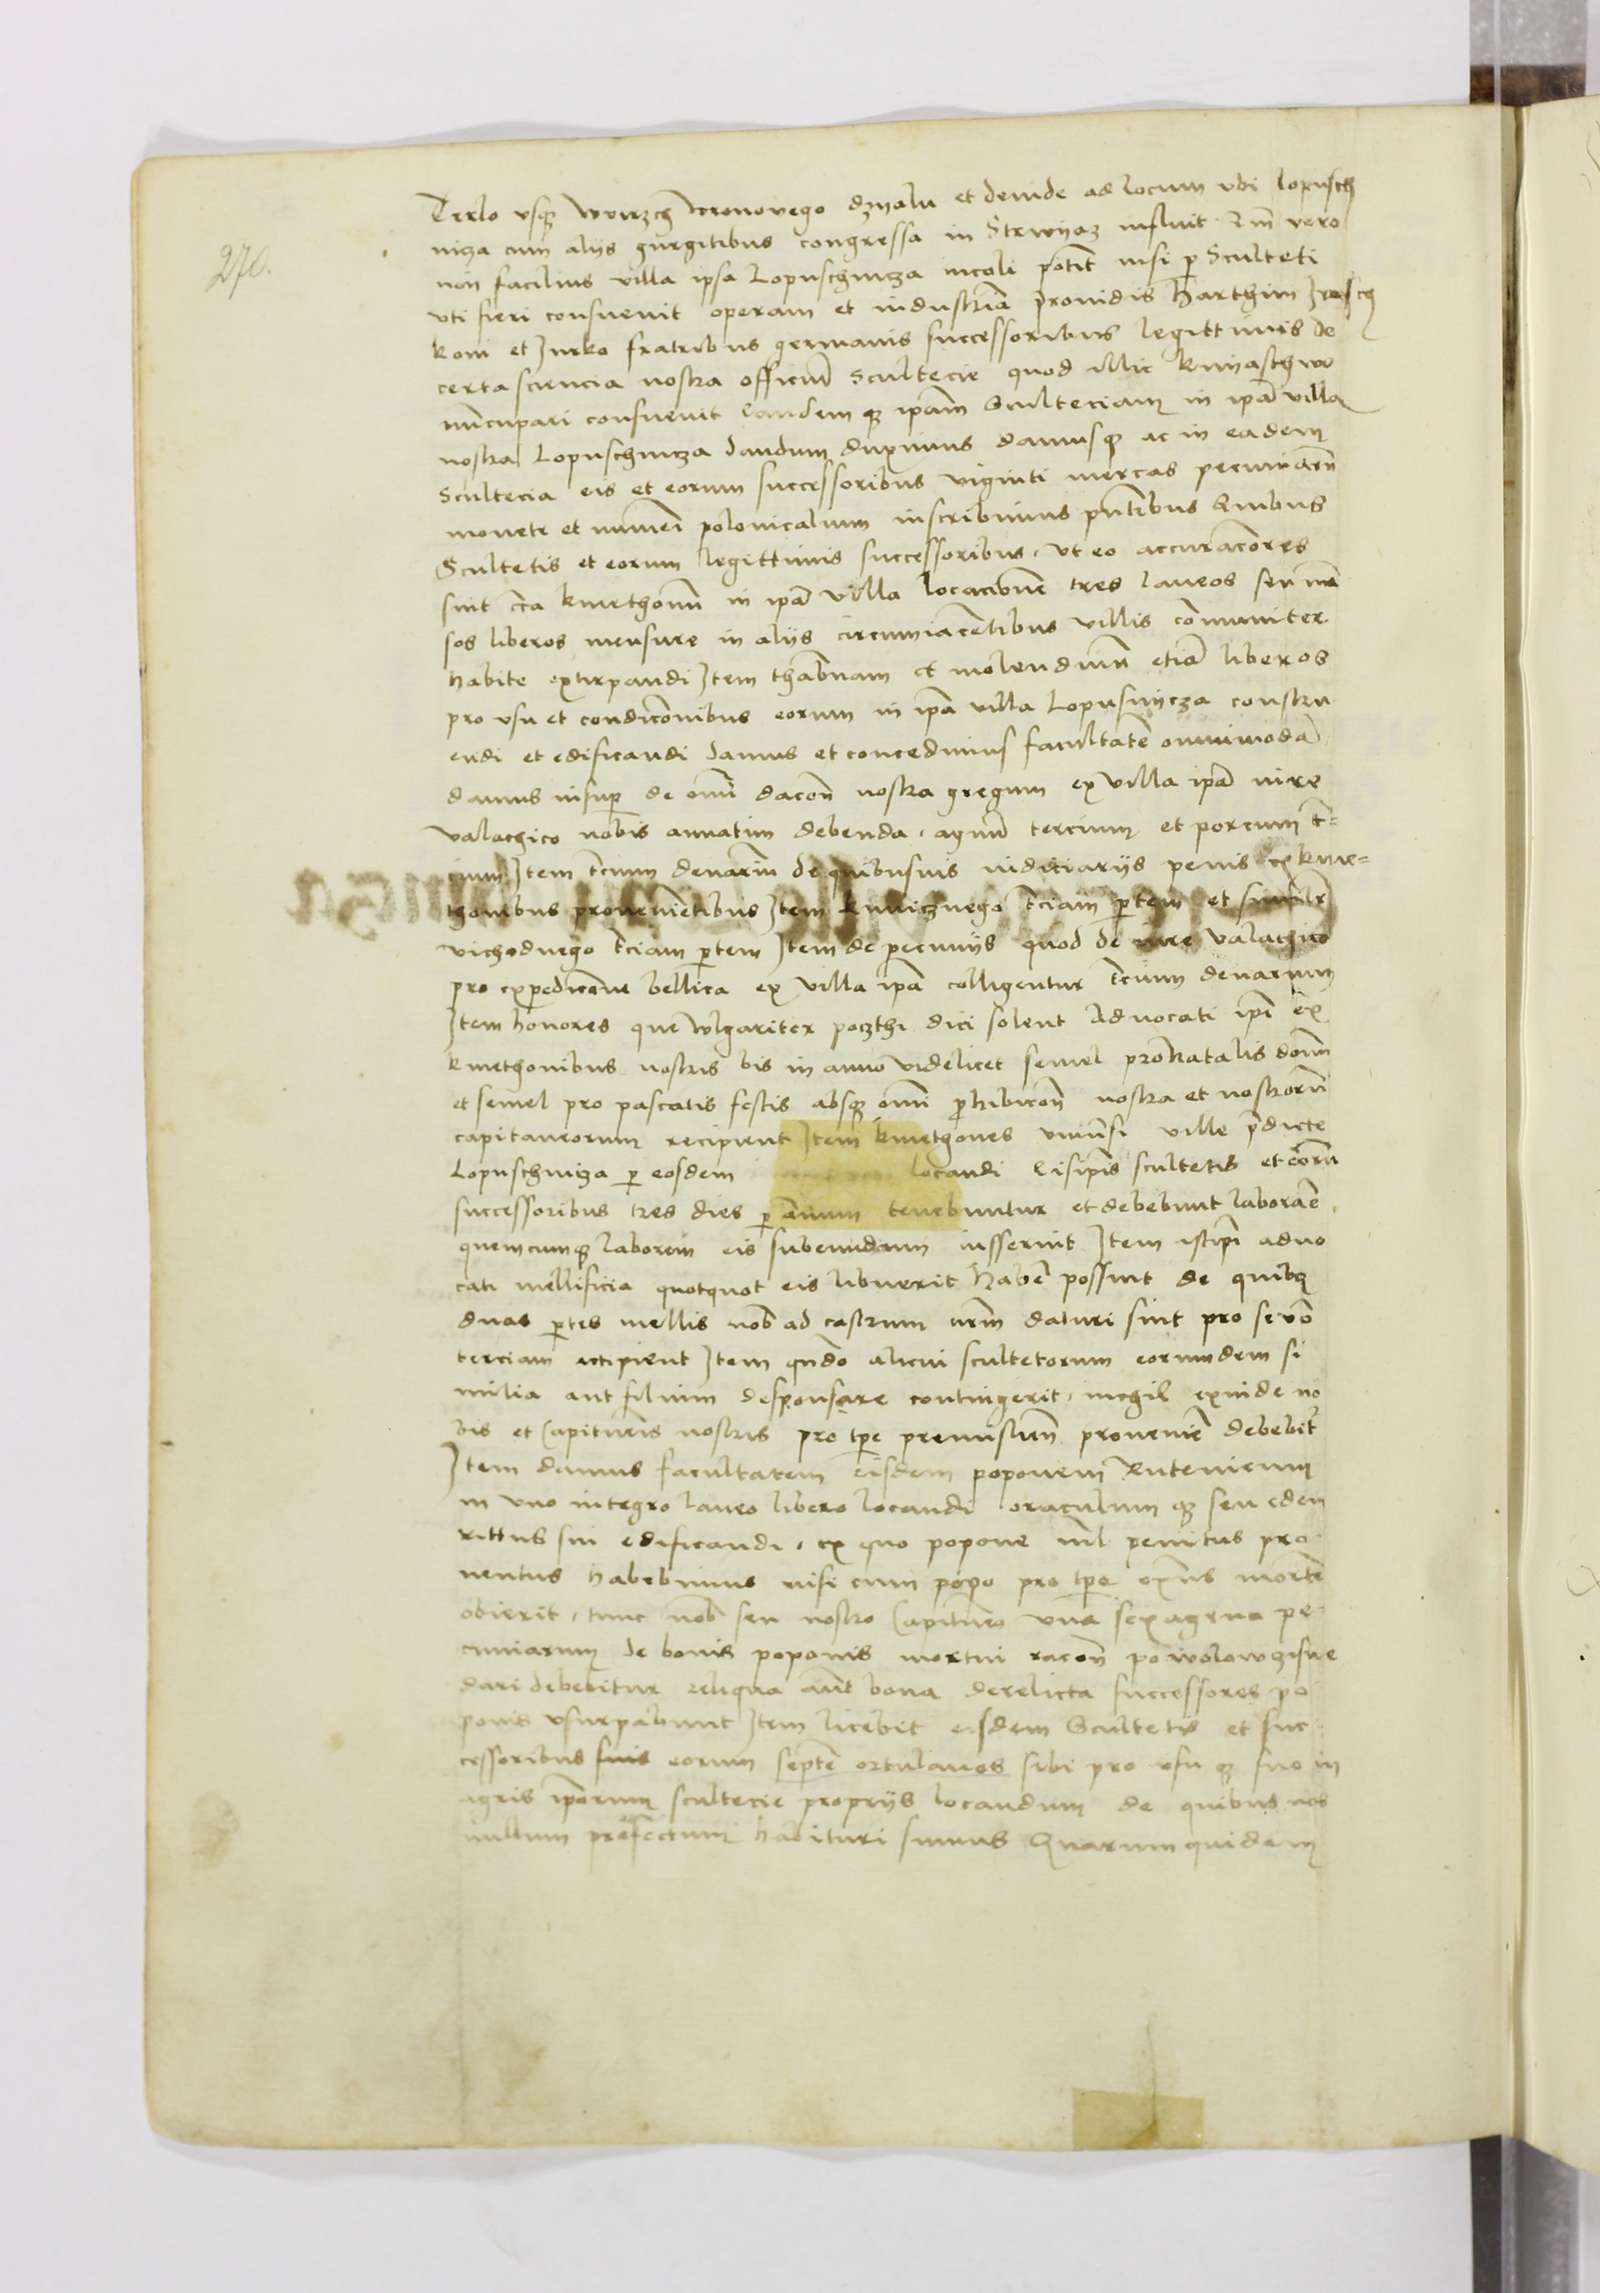 270.
Terlo usq wvirzch wronovego dzyalu et deinde ad locum ubi Lopusch
nicza cum alijs gurgitibus congressa in Strwyaz influit Qm vero
non facilius villa ipsa Lopuschnicza incoli potit nisi p Sculteti
uti fieri consuevit operam et industria providis Harthim
koni et Jurko fratribus germanis successoribus legittimis de
certa sciencia nostra officiu Scultecie quod illic knyasthwo
nucupari consuevit Eandem q ipam Sculteciam in ipa villa
nostra Lopuschnicza dandum duximus damusq ac in eadem
Scultecia eis et eorum successoribus viginti mercas pecuniaru
monete et numeri polonicalium inscribimus pntibus Quibus
Scultetis et eorum legittimis successoribus ut eo accuraciores
sint cca kmethonu in ipa villa locacione tres laneos seu man
sos liberos mensure in alijs circumiacentibus villis comuniter
habite extirpandi Item thabernam et molendinu etia liberos
pro usu et condicionibus eorum in ipa villa Lopusnycza constru
endi et edificandi damus et concedimus facultate omnimoda
damus insup de omi dacon nostra gregum ex villa ipa iure
valachico nobis annatim debenda agnu tercium et porcum t=
cium Item tcium denariu de quibusvis iudiciarijs penis ex kme=
thonibus provenietibus Item knnicznego tciam ptem et similr
vichodnego tciam ptem Item de pecunijs quod de iure valachico
pro expedicione bellica ex villa ipa colligentur tcium denarium
Item honores que wlgariter poczthi dici solent Advocati ipi ex
kmethonibus nostris bis in anno videlicet semel pro Natalis domi
et semel pro pascatis festis absq omi phibicon nostra et nostroru
capitaneorum recipient Item kmethones universi ville pdicte
Lopuschnicza p eosdem locandi Eisipis scultetis et eoru
successoribus tres dies p annum tenebuntur et debebunt laborare
quemcumq laborem eis subeundum iusserint Item istipi advo
cati mellificia quotquot eis libuerit habe possint de quibq
duas ptes mellis nob ad castrum nrm daturi sint pro se vo
terciam accipient Item qndo alicui scultetorum eorumdem fi
milia aut filium desponsare contingerit nichil exinde no
bis et Capitaneis nostris pro tpe provenire debebit
Item damus facultatem eisdem poponem Rutenicum
in uno integro laneo libero locandi oraculum q seu edem
rittus sui edificandi ex quo popone nil penitus pro
ventus habebimus nisi cum popo pro tpe exns morte
obierit tunc nob seu nostro Capitaneo una sexagena pe
cuniarum de bonis poponis mortui racon
dari debebitur reliqua aut bona derelicta successores po
ponis usurpabunt Item licebit eisdem Scultetis et suc
cessoribus suis eorum septe ortulanos sibi pro usu q suo in
agris iporum scultecie proprijs locandum de quibus nos
nullum profectum habituri sumus Quarum quidem